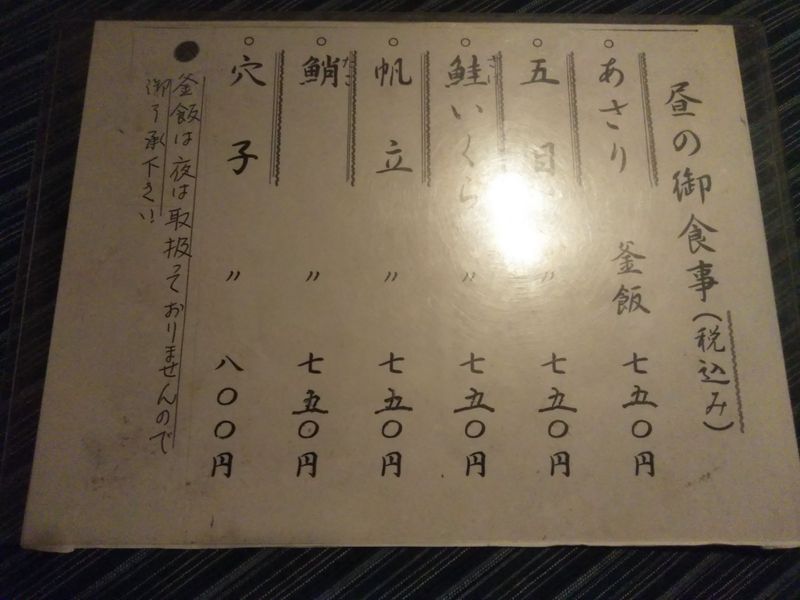 昼の御食事(税込み)
○あさり 釜飯 七五〇円
○五目 〃 七五〇円
○鮭いくら 〃 七五〇円
さけ
○帆立 〃 七五〇円
○鮹 〃 七五〇円
たこ
○穴子 〃 八〇〇円
●釜飯は夜は取扱っておりませんので
御了承下さい!